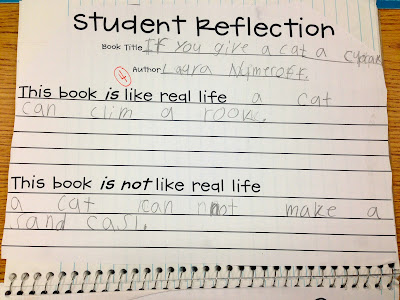 Student Reflection
Book Title If you give a cat a cupcak
Author Laura Numeroff.
4
This book is like real life a cat
can clim a rook.
This book is not like real life
a cat can nnot make a
sand casl.